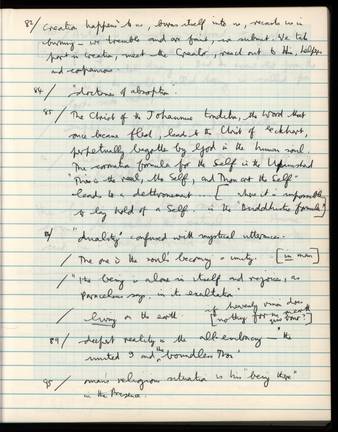 82/ Creation happens to us, burns itself into us, recasts us in
burning — we tremble and are faint, we submit. We take
part in creation, meet the Creator, reach out to Him, helpers
and companions
84/ "doctrine of absorption"
85/ The Christ of the Johannine tradition, the Word that
once became flesh, leads to the Christ of Eckhart,
perpetually begotten by God in the human soul.
The coronation formula for the Self in the Upanishad
"This is the real, the Self, and Thou art the Self"
leads to a dethronement ... [where it is impossible
to lay hold of a Self .. in the "Buddhistic formula"]
86/ "duality" confused with mystical utterance.
/ The one is the soul's becoming a unity. [in man]
/ "The being is alone in itself and rejoices, as
Paracelsus says, in its exaltation"
/ living on the earth [if heavenly man does
nothing for
89/ deepest reality is the all-embracing — "the
united I and the boundless Thou"
95/ man's religious situation is his "being there"
in the Presence.